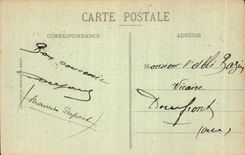 CARTE POSTALE
CORRESPONDANCE
ADRESSE
Bon souvenir
Maurice Dupont
Monsieur l'abbé
Vicaire
Domfront
(Orne)